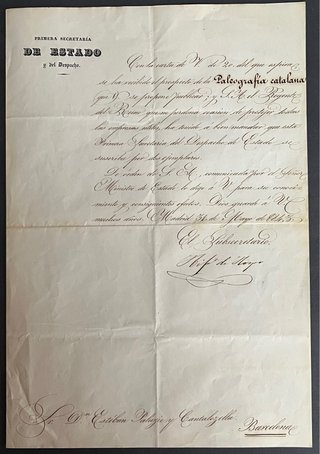 PRIMERA SECRETARÍA
DE ESTADO
y del Despacho.
Con la carta de V. de 20. del que espira
se ha recibido el prospecto de la Paleografía catalana
que V. se propone publicar; y S. A. el Regente
del Reino que no perdona ocasion de protejer todas
las empresas utiles, ha tenido a bien mandar que esta
Primera Secretaría del Despacho de Estado se
suscriba por dos ejemplares.
De orden de S. A., comunicada por el Señor
Ministro de Estado lo digo á V. para su conoci-
miento y consiguientes efectos. Dios guarde á V.
muchos años. Madrid 31 de Mayo de
El Subsecretario.
de Hoyo
Sr. Dn. Estéban Paluzie y Cantalozella.
Barcelona